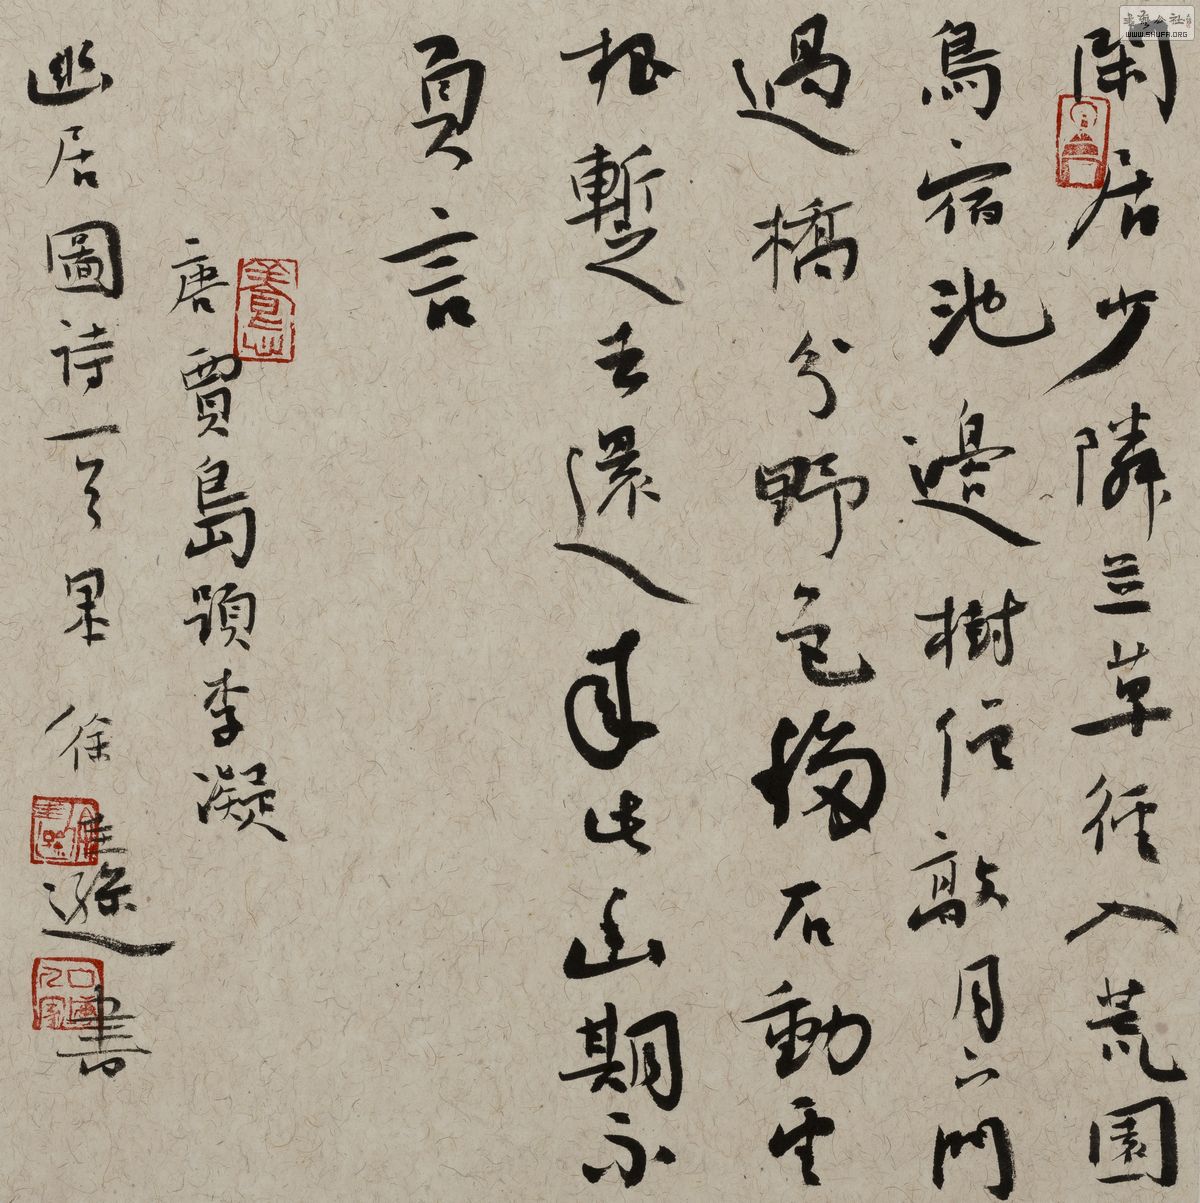 閑居少隣並草徑入荒園
鳥宿池邊樹僧敲月下門
過橋分野色移石動雲
根暫去還來此幽期不
負言
唐賈島題李凝
幽居圖詩一首果徐遜書
書藝公社
WWW.SHUFA.ORG